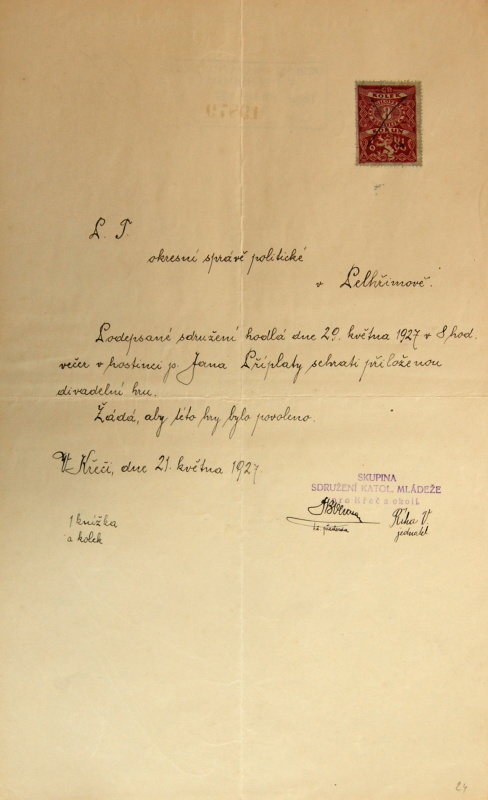 KOLEK
8
KORUN
P. T.
okresní správě politické
v Pelhřimově.
Podepsané sdružení hodlá dne 29. května 1927 v 8 hod.
večer v hostinci p. Jana Příplaty sehrati přiloženou
divadelní hru.
Žádá, aby této hry bylo povoleno.
V Křeči, dne 21. května 1927.
SKUPINA
SDRUŽENÍ KATOL. MLÁDEŽE
pro Křeč a okolí
1 knížka
a kolek
Říha V
jednatel
24